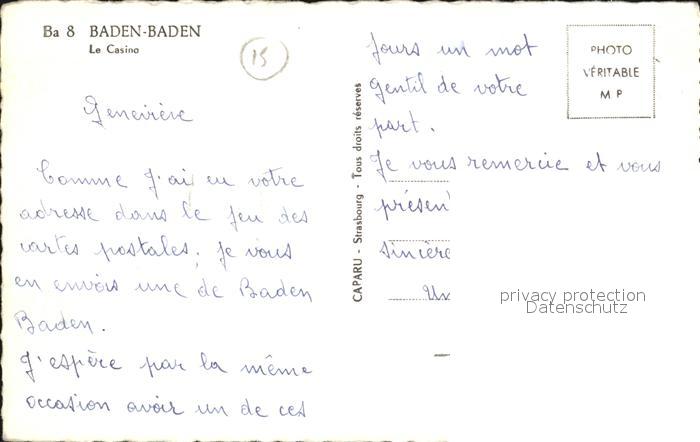 Ba 8 BADEN-BADEN
Le Casino
15
Geneviève
Comme J'ai eu votre
adresse dans le jeu des
cartes postales, je vous
en envois une de Baden
Baden.
J'espère par la même
occasion avoir un de ces
CAPARU - Strasbourg - Tous droits réservés
Jours un mot
gentil de votre
part.
Je vous remercie et vous
présen
sincère
Un
PHOTO
VÉRITABLE
M P
privacy protection
Datenschutz